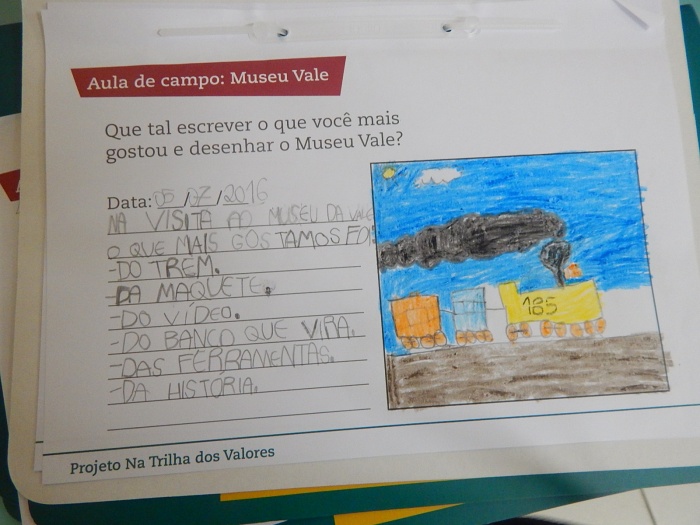 Aula de campo: Museu Vale
Que tal escrever o que você mais
gostou e desenhar o Museu Vale?
Data: 05/07/2016
NA VISITA AO MUSEU DA VALE
O QUE MAIS GOSTAMOS FOI
-DO TREM.
-DA MAQUETE.
-DO VÍDEO.
-DO BANCO QUE VIRA.
-DAS FERRAMENTAS.
-DA HISTORIA.
185
Projeto Na Trilha dos Valores